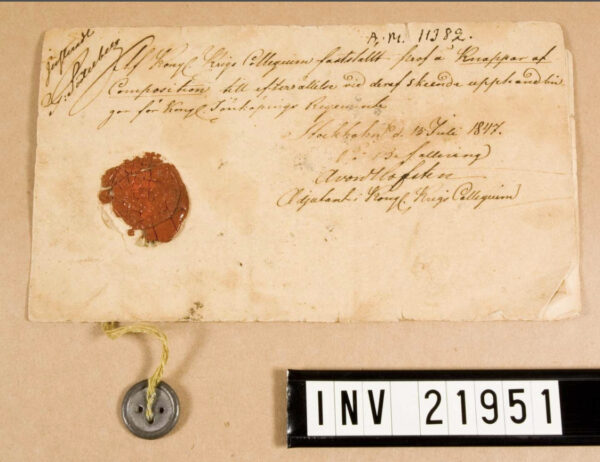 A.M. 11382.
Af Kongl. Krigs Collegium fastställt prof å Knappar af
Composition till efterrättelse vid deraf skeende upphandlin
gar för Kongl. Jönköpings Regemente
Stockholm d. 15 Juli 1847.
På Befallning
Adjutant i Kongl. Krigs Collegium
INV 21951